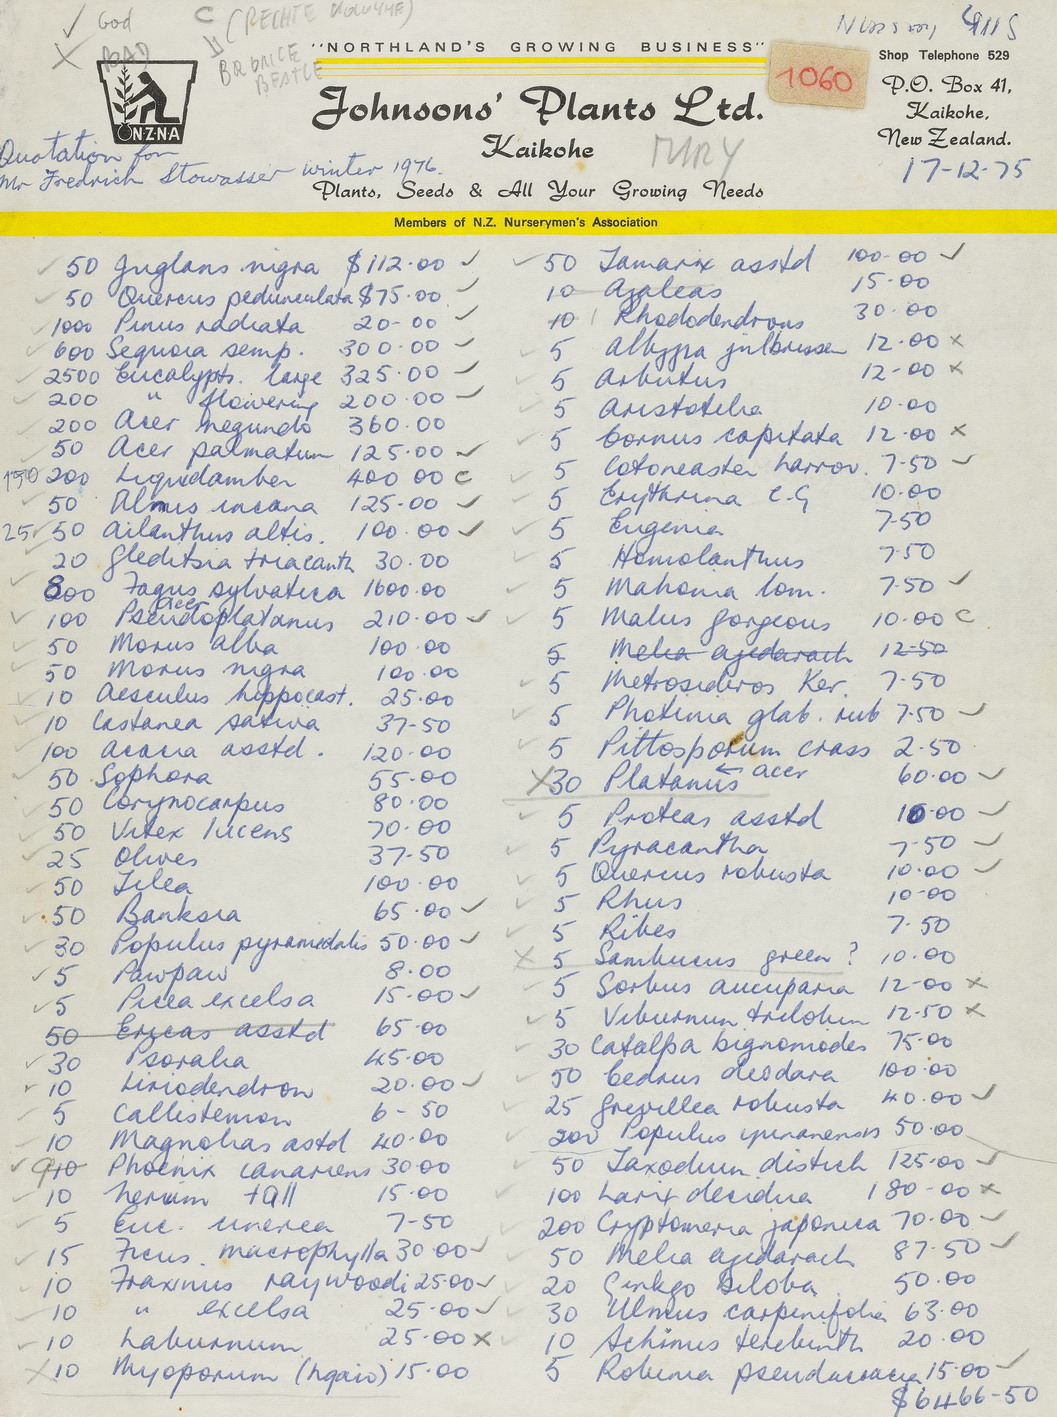 ✓ God
✗ BAD
C (RECHTE KOLONNE)
BRONCE
BEATLE
"NORTHLAND'S GROWING BUSINESS"
Nursery
1060
Shop Telephone 529
Johnsons' Plants Ltd.
P.O. Box 41,
Kaikohe,
New Zealand.
Kaikohe
N·Z·N·A
Quotation for
Mr Fredrich Stowasser winter 1976.
17-12-75
Plants, Seeds & All Your Growing Needs
Members of N.Z. Nurserymen's Association
✓ 50 Juglans nigra $112·00 ✓
✓ 50 Quercus pedunculata $75·00 ✓
✓ 1000 Pinus radiata 20-00 ✓
✓ 600 Sequoia semp. 300·00 ✓
✓ 2500 Eucalypts. large 325·00 ✓
✓ 200 " flowering 200·00 ✓
200 Acer negundo 360·00
✓ 50 Acer palmatum 125·00 ✓
150 200 Liquidamber 400 00 C
✓ 50 Alnus incana 125·00 ✓
25 50 Ailanthus altis. 100·00 ✓
20 Gleditsia triacanth 30·00
✓ 800 Fagus sylvatica 1600·00
✓ 100 acer Pseudoplatanus 210·00 ✓
✓ 50 Morus alba 100·00
✓ 50 Morus nigra 100·00
✓ 10 Aesculus hippocast. 25·00
✓ 10 Castanea sativa 37-50
✓ 100 Acacia asstd. 120·00
✓ 50 Sophora 55·00
✓ 50 Corynocarpus 80·00
✓ 50 Vitex lucens 70·00
✓ 25 Olives 37-50
✓ 50 Tilea 100·00
✓ 50 Banksia 65·00 ✓
✓ 30 Populus pyramidalis 50·00 ✓
✓ 5 Pawpaw 8·00
✓ 5 Picea excelsa 15·00 ✓
50 Ericas asstd 65·00
✓ 30 Psoralia 45·00
✓ 10 Liriodendron 20·00 ✓
✓ 5 Callistemon 6-50
✓ 10 Magnolias astd 40·00
✓ 9 10 Phoenix canariens 30·00
✓ 10 Nerium tall 15·00
✓ 5 Euc. cinerea 7-50
✓ 15 Ficus. macrophylla 30·00 ✓
✓ 10 Fraxinus raywoodi 25·00 ✓
✓ 10 " excelsa 25·00 ✓
✓ 10 Laburnum 25·00 ✗
✗ 10 Myoporum (ngaio) 15·00
✓ 50 Tamarix asstd 100-00 ✓
10 Azaleas 15·00
10 Rhododendrons 30·00
✓ 5 Albyzia julbrissen 12·00 ✗
✓ 5 Arbutus 12-00 ✗
✓ 5 Aristotelia 10·00
✓ 5 Cornus capitata 12·00 ✗
✓ 5 Cotoneaster harrov. 7-50 ✓
✓ 5 Erythrina C.G 10·00
✓ 5 Eugenia 7-50
✓ 5 Homolanthus 7·50
✓ 5 Mahonia lom. 7·50 ✓
✓ 5 Malus gorgeous 10·00 C
5 Melia azedarach 12-50
✓ 5 Metrosideros Ker. 7-50
✓ 5 Photinia glab. rub 7·50 ✓
✓ 5 Pittosporum crass 2·50
✗ 30 Platanus ← acer 60·00 ✓
✓ 5 Proteas asstd 10·00 ✓
✓ 5 Pyracantha 7-50 ✓
✓ 5 Quercus robusta 10·00 ✓
✓ 5 Rhus 10-00
✓ 5 Ribes 7·50
✗ 5 Sambucus green? 10·00
✓ 5 Sorbus aucuparia 12-00 ✗
✓ 5 Viburnum trilobum 12·50 ✗
✓ 30 Catalpa bignonoides 75·00
✓ 50 Cedrus deodara 100·00
✓ 25 Grevillea robusta 40·00 ✓
✓ 200 Populus yunanensis 50·00
✓ 50 Taxodium distich 125·00 ✓
✓ 100 Larix decidua 180-00 ✗
✓ 200 Cryptomeria japonica 70·00 ✓
✓ 50 Melia azedarach 87·50 ✓
✓ 20 Ginkgo biloba 50·00
✓ 30 Ulmus carpinifolia 63·00
✓ 10 Schinus terebinth 20·00
✓ 5 Robinia pseudacacia 15·00 ✓
$6466-50